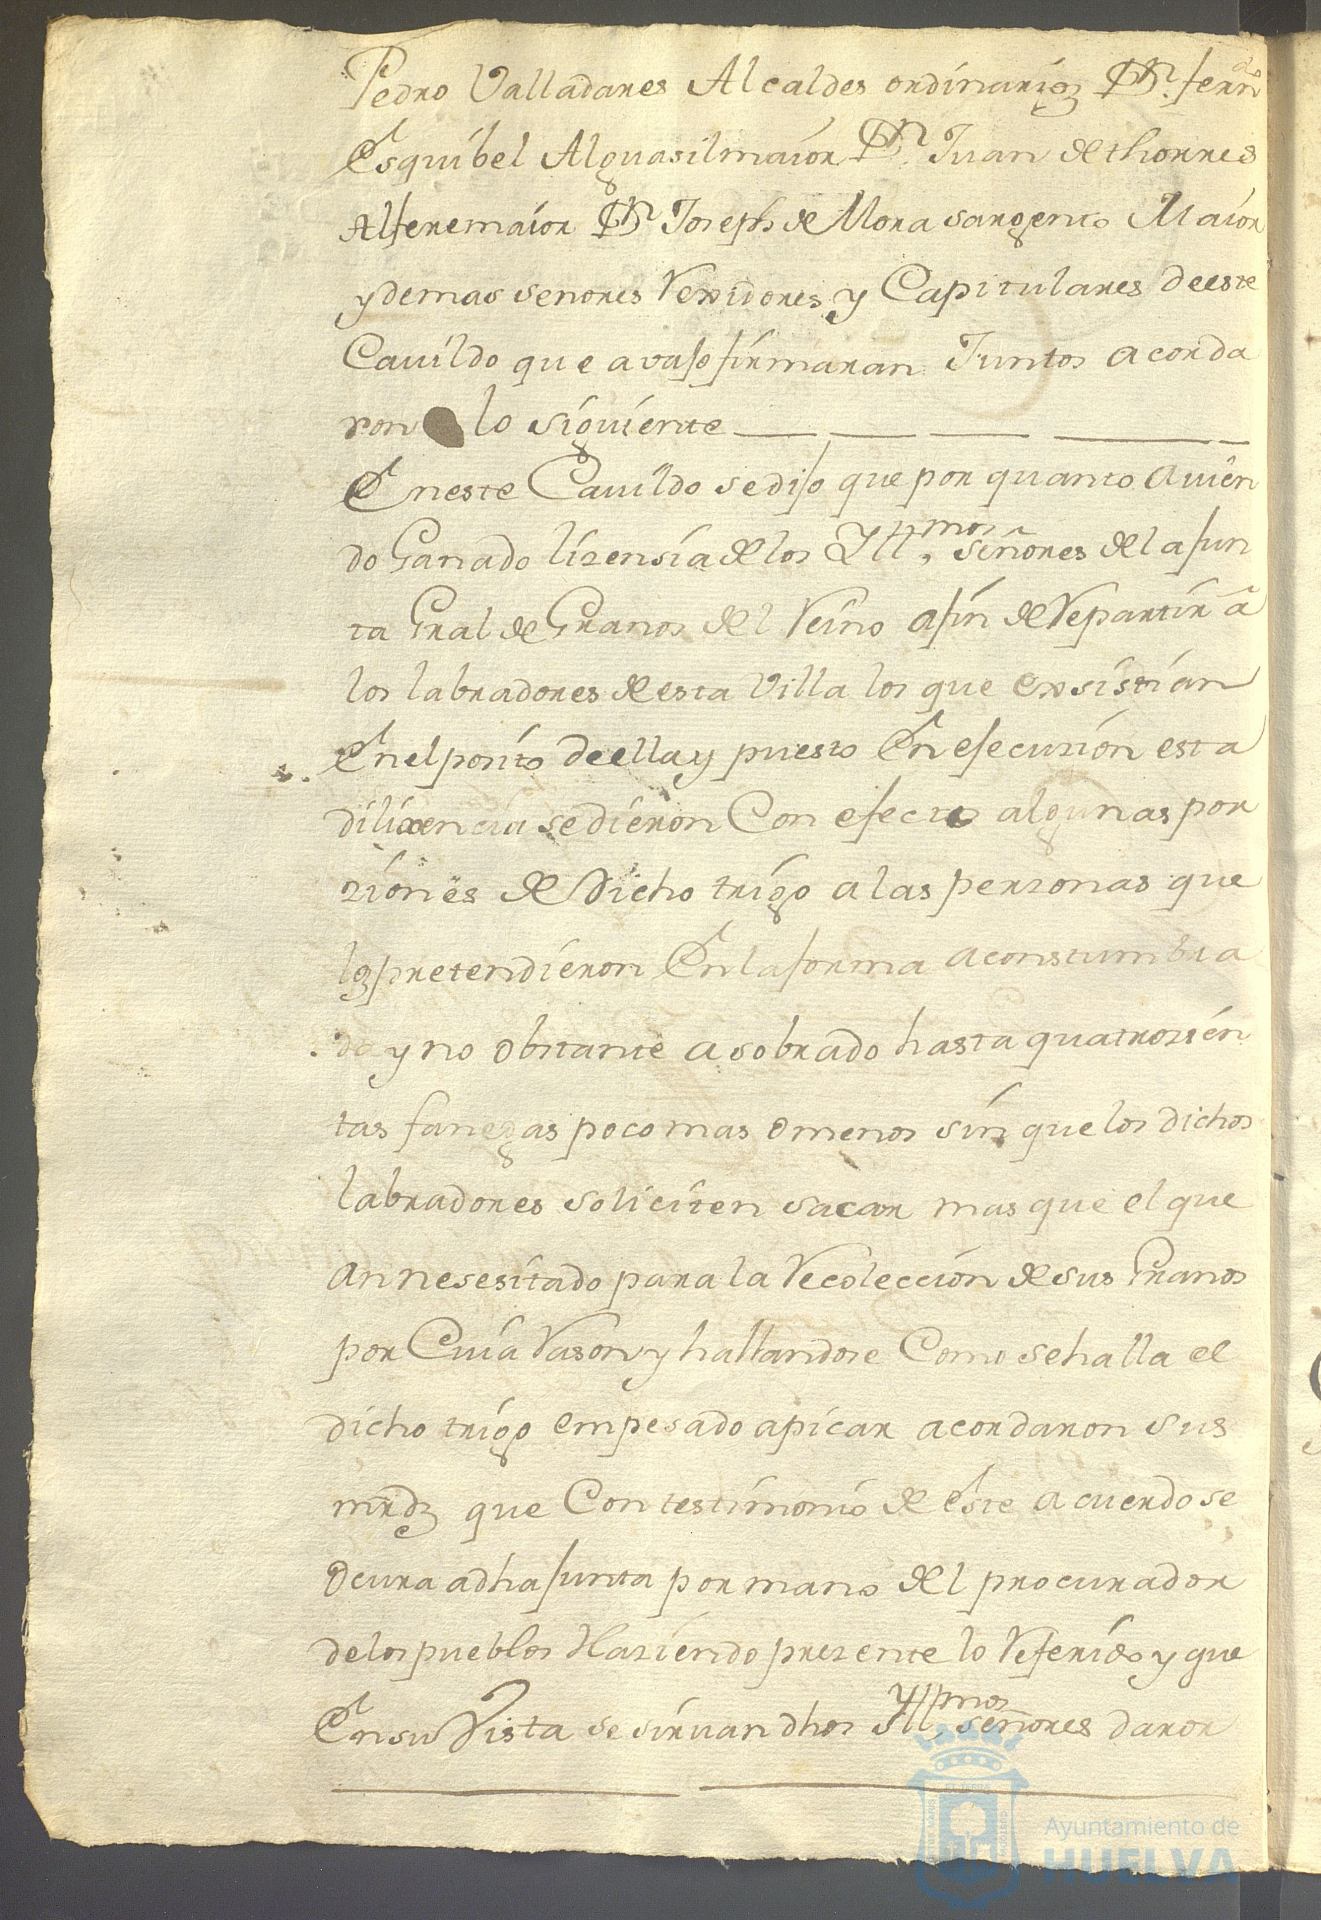 Pedro Valladares Alcaldes ordinarios Dn. ferndo
Esquibel Alguasilmaior Dn. Juan de thorres
Alferemaior Dn Joseph de Mora sargento Maior
y demas senores Rexidores y Capitulares de este
Cauildo que avaso firmaran Juntos acorda
ron lo siguiente
En este Cauildo se dijo que por quanto auien
do Ganado lizensia de los Yllmos. señores de la Jun
ta Gral de Granos del Reino a fin de Repartir a
los labradores de esta Villa los que exsistian
En el posito de ella y puesto En ejecuzion esta
dilixencia se dieron Con efecto algunas por
ziones de Dicho trigo a las perzonas que
los pretendieron En la forma aconstumbra
da y no obstante a sobrado hasta quatrozien
tas fanegas poco mas o menos sin que los dichos
labradores soliciten sacar mas que el que
an nesesitado para la Recoleccion de sus Granos
por Cuia Rason y hallandose Como se halla el
dicho trigo empesado a picar acordaron sus
mrds que Con testimonio de este acuerdo se
ocura a dha Junta por mano del procurador
de los pueblos Haziendo prezente lo Referido y que
En su Vista se siruan dhos Yllmos. señores dar or
Ayuntamiento de
HUELVA